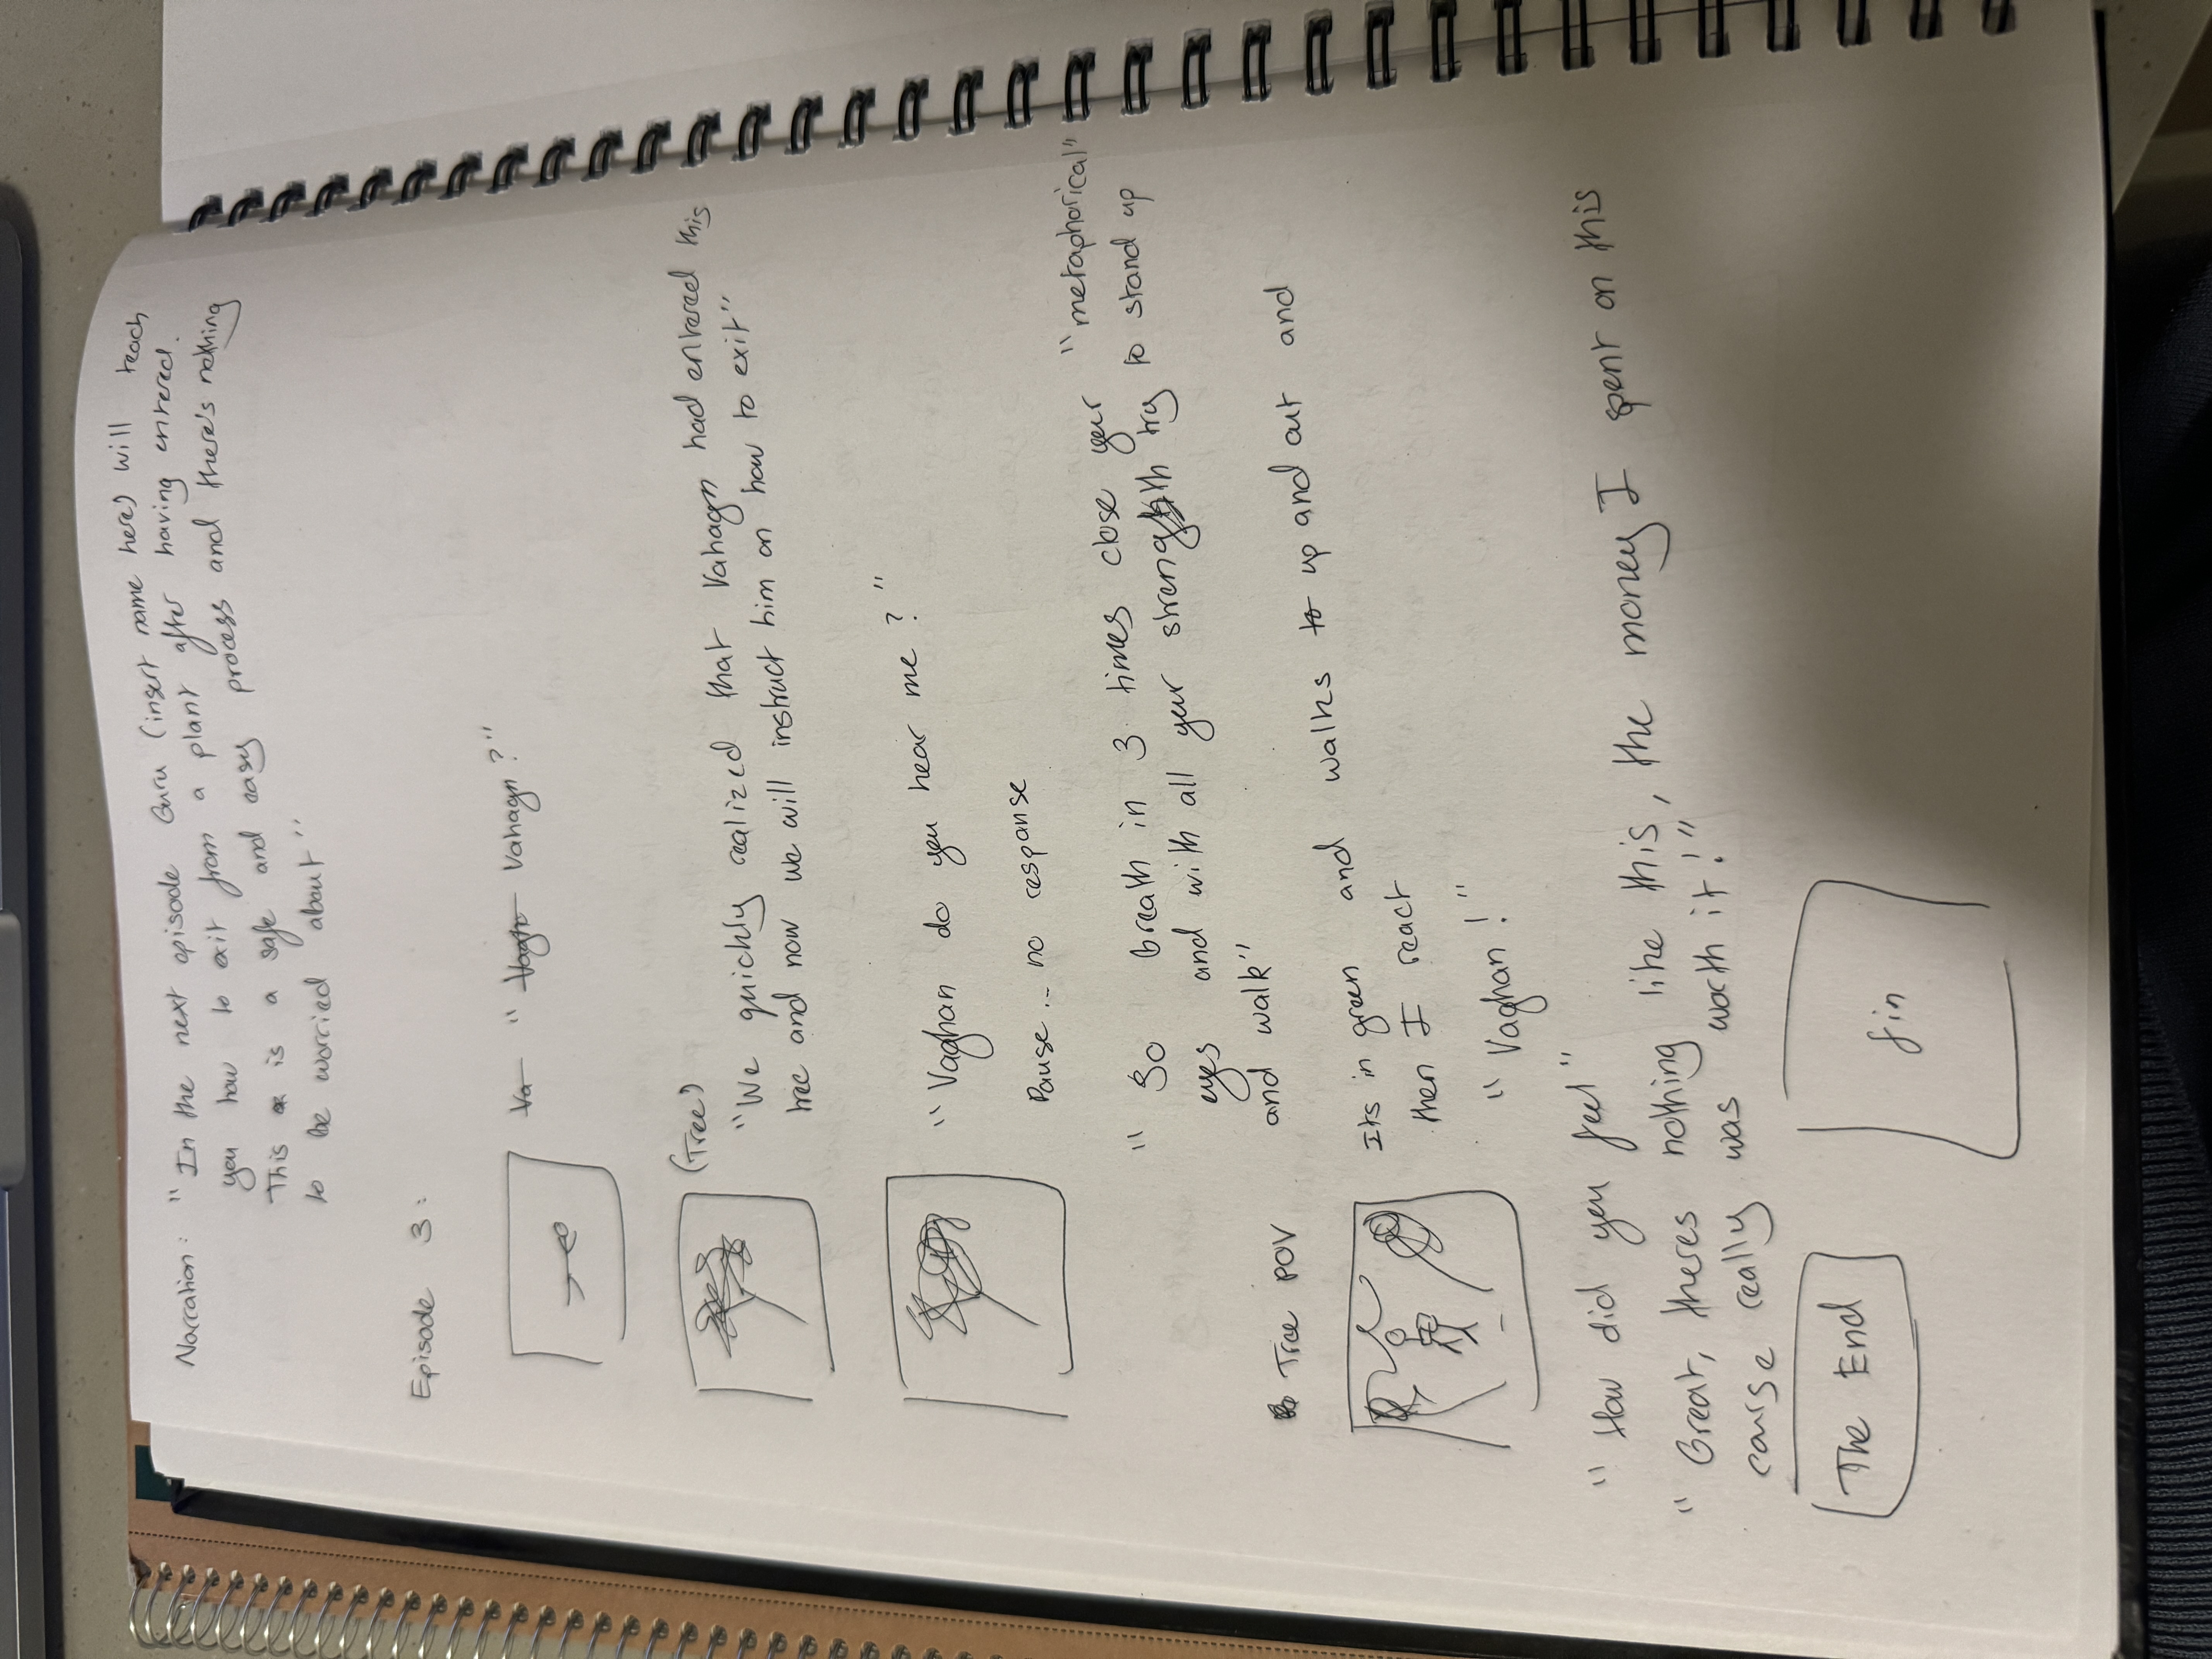 Narration: "In the next episode Guru (insert name here) will teach
you how to exit from a plant after having entered.
This is a safe and easy process and there's nothing
to be worried about"
Episode 3:
Va " Vagh Vahagn?"
(Tree)
"We quickly realized that Vahagn had entered this
tree and now we will instruct him on how to exit"
"Vaghan do you hear me?"
Pause... no response
"So breath in 3 times close your "metaphorical"
eyes and with all your strength try to stand up
and walk"
Tree POV
Its in green and walks to up and out and
then I react
"Vaghan!"
"How did you feel"
"Great, theres nothing like this, the money I spent on this
course really was worth it!"
The End
fin